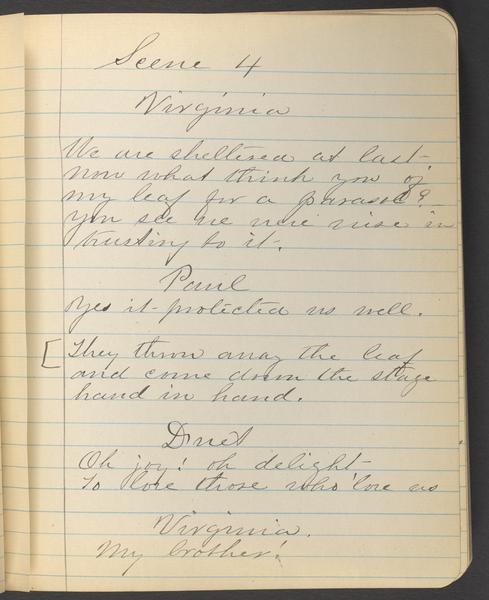 Scene 4
Virginia
We are sheltered at last-
now what think you of
my leaf for a parasol?-
you see we were wise in
trusting to it-.
Paul
Yes it- protected us well.
[They throw away the leaf
and come down the stage
hand in hand.
Duet
Oh joy! oh delight-
To love those who love us
Virginia.
My brother!